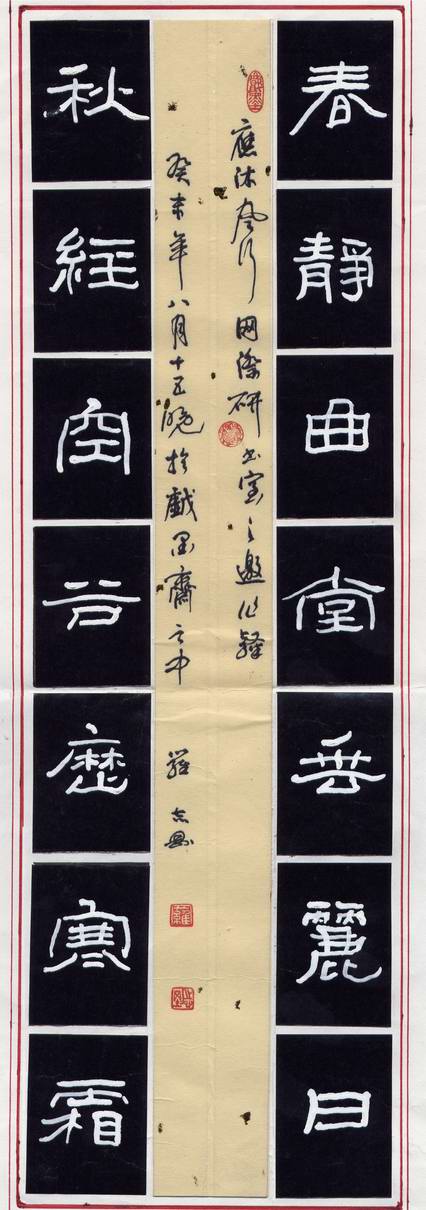 春靜曲堂垂麗日
應沐風行網際研书室之邀作
癸未年八月十五晚於戲墨齋之中 羅志
秋經空谷歷寒霜